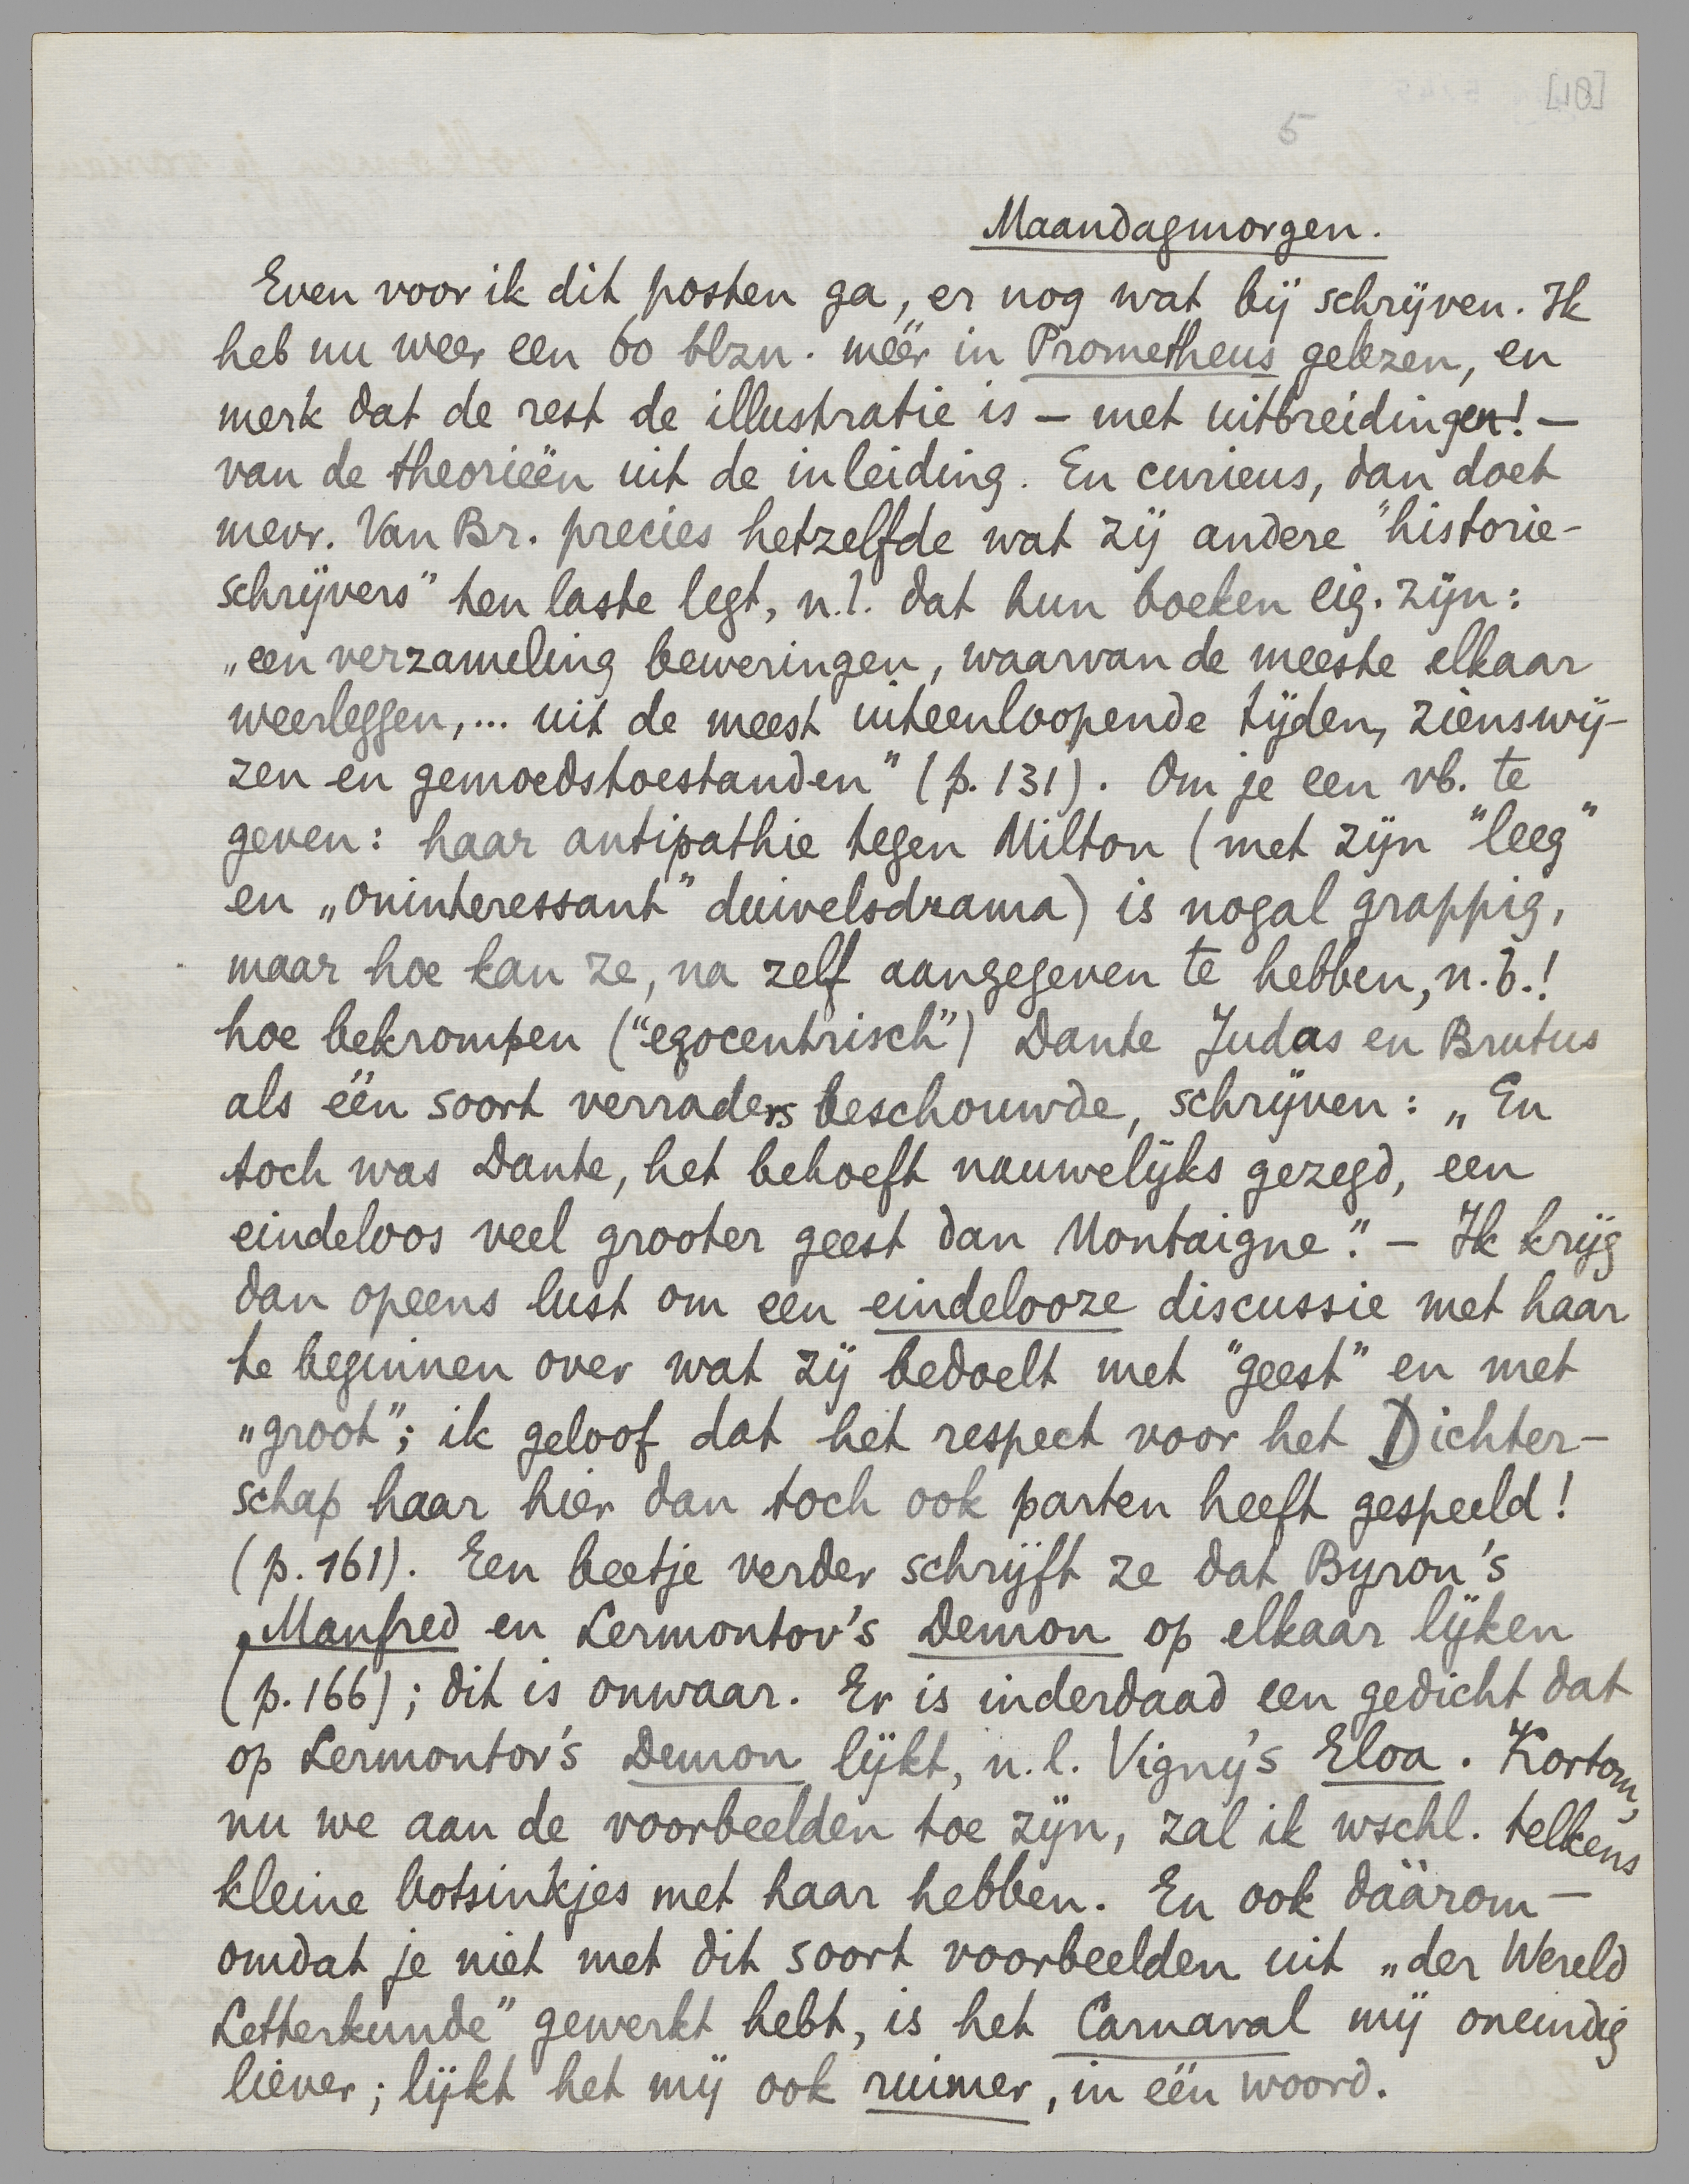 [18]
5
Maandagmorgen.
Even voor ik dit posten ga, er nog wat bij schrijven. Ik
heb nu weer een 60 blzn. méér in Prometheus gelezen, en
merk dat de rest de illustratie is – met uitbreidingen! –
van de theorieën uit de inleiding. En curieus, dan doet
mevr. Van Br. precies hetzelfde wat zij andere "historie-
schrijvers" ten laste legt, n.l. dat hun boeken eig. zijn:
„een verzameling beweringen, waarvan de meeste elkaar
weerleggen,... uit de meest uiteenloopende tijden, zienswij-
zen en gemoedstoestanden" (p. 131). Om je een vb. te
geven: haar antipathie tegen Milton (met zijn "leeg"
en „oninteressant" duivelsdrama) is nogal grappig,
maar hoe kan ze, na zelf aangegeven te hebben, n.b.!
hoe bekrompen ("egocentrisch") Dante Judas en Brutus
als één soort verraders beschouwde, schrijven: „En
toch was Dante, het behoeft nauwelijks gezegd, een
eindeloos veel grooter geest dan Montaigne". – Ik krijg
dan opeens lust om een eindelooze discussie met haar
te beginnen over wat zij bedoelt met "geest" en met
„groot"; ik geloof dat het respect voor het Dichter-
schap haar hier dan toch ook parten heeft gespeeld!
(p. 161). Een beetje verder schrijft ze dat Byron's
Manfred en Lermontov's Demon op elkaar lijken
(p. 166); dit is onwaar. Er is inderdaad een gedicht dat
op Lermontov's Demon lijkt, n.l. Vigny's Eloa. Kortom,
nu we aan de voorbeelden toe zijn, zal ik wschl. telkens
kleine botsinkjes met haar hebben. En ook dáárom –
omdat je niet met dit soort voorbeelden uit „der Wereld
Letterkunde" gewerkt hebt, is het Carnaval mij oneindig
liever; lijkt het mij ook ruimer, in één woord.